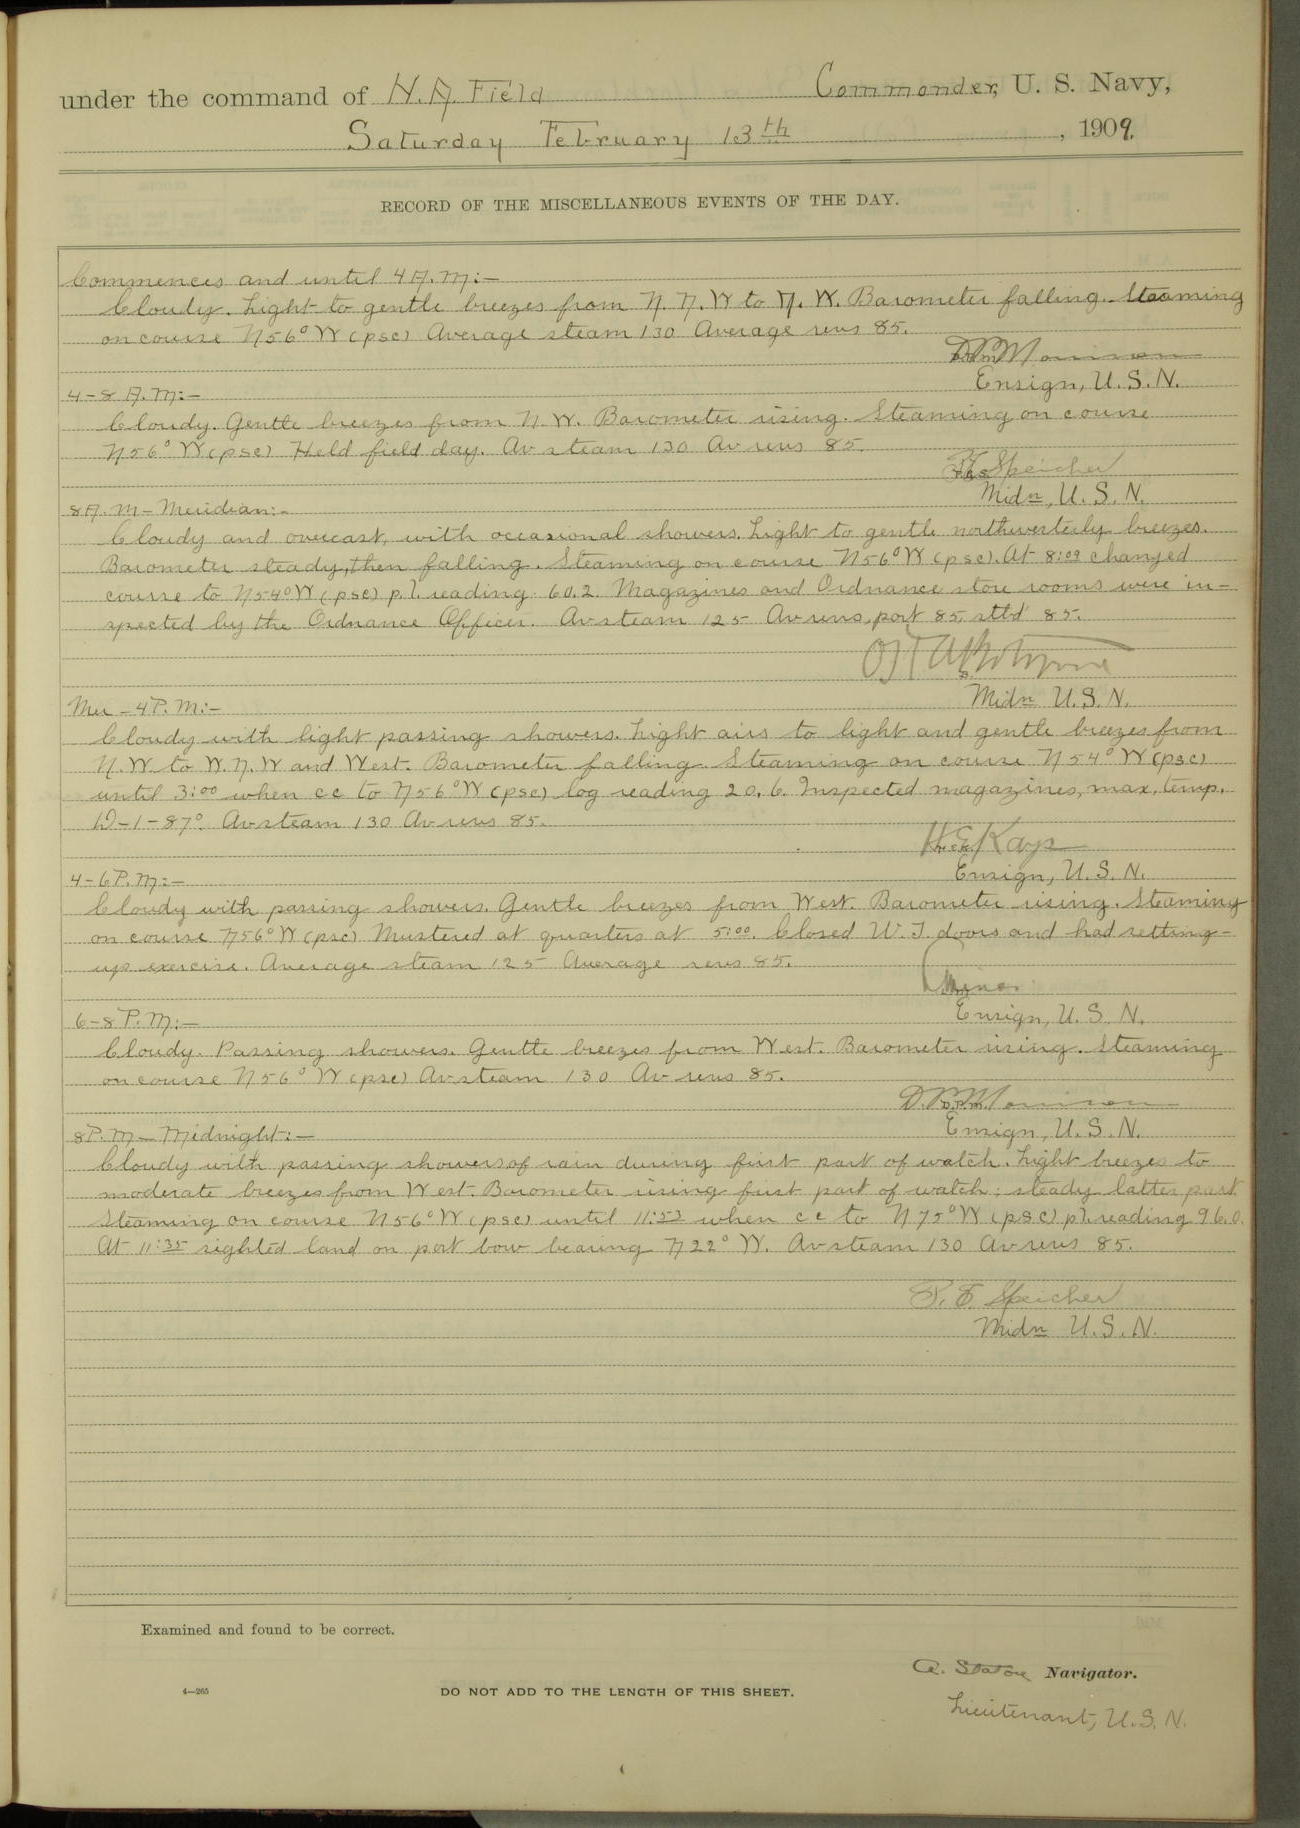 under the command of H. A. Field Commander, U. S. Navy,
Saturday February 13th, 1909.
RECORD OF THE MISCELLANEOUS EVENTS OF THE DAY.
Commences and until 4 A.M:-
Cloudy. Light to gentle breezes from N. N. W to N. W. Barometer falling. Steaming
on course N56°W (psc) Average steam 130 Average revs 85.
D.P. Morrison
Ensign, U. S. N.
4-8 A.M:-
Cloudy. Gentle breezes from N. W. Barometer rising. Steaming on course
N56°W (psc) Held field day. Av steam 130 Av revs 85.
Speicher
Midn, U. S. N.
8 A.M - Meridian:-
Cloudy and overcast, with occasional showers. Light to gentle northwesterly breezes.
Barometer steady, then falling. Steaming on course N56°W (psc). At 8:09 changed
course to N54°W (psc) p.l. reading 60.2. Magazines and Ordnance store rooms were in-
spected by the Ordnance Officer. Av steam 125 Av revs, port 85, stbd 85.
Midn U.S.N.
Mer - 4 P.M:-
Cloudy with light passing showers. Light airs to light and gentle breezes from
N.W. to W.N.W and West. Barometer falling. Steaming on course N54°W (psc)
until 3:00 when cc to N56°W (psc) log reading 20.6. Inspected magazines, max. temp.
D-1-87°. Av steam 130 Av revs 85.
Kays
Ensign, U. S. N.
4-6 P.M:-
Cloudy with passing showers. Gentle breezes from West. Barometer rising. Steaming
on course N56°W (psc) Mustered at quarters at 5:00. Closed W. T. doors and had setting-
up exercise. Average steam 125 Average revs 85.
Ensign, U. S. N.
6-8 P.M:-
Cloudy. Passing showers. Gentle breezes from West. Barometer rising. Steaming
on course N56°W (psc) Av steam 130 Av revs 85.
D.P. Morrison
Ensign, U. S. N.
8 P.M - Midnight:-
Cloudy with passing showers of rain during first part of watch. Light breezes to
moderate breezes from West. Barometer rising first part of watch; steady latter part.
Steaming on course N56°W (psc) until 11:53 when cc to N75°W (psc) pl. reading 96.0.
At 11:35 sighted land on port bow bearing N22°W. Av steam 130 Av revs 85.
Speicher
Midn U.S.N.
Examined and found to be correct.
A. Staton Navigator.
4-265
DO NOT ADD TO THE LENGTH OF THIS SHEET.
Lieutenant, U.S.N.